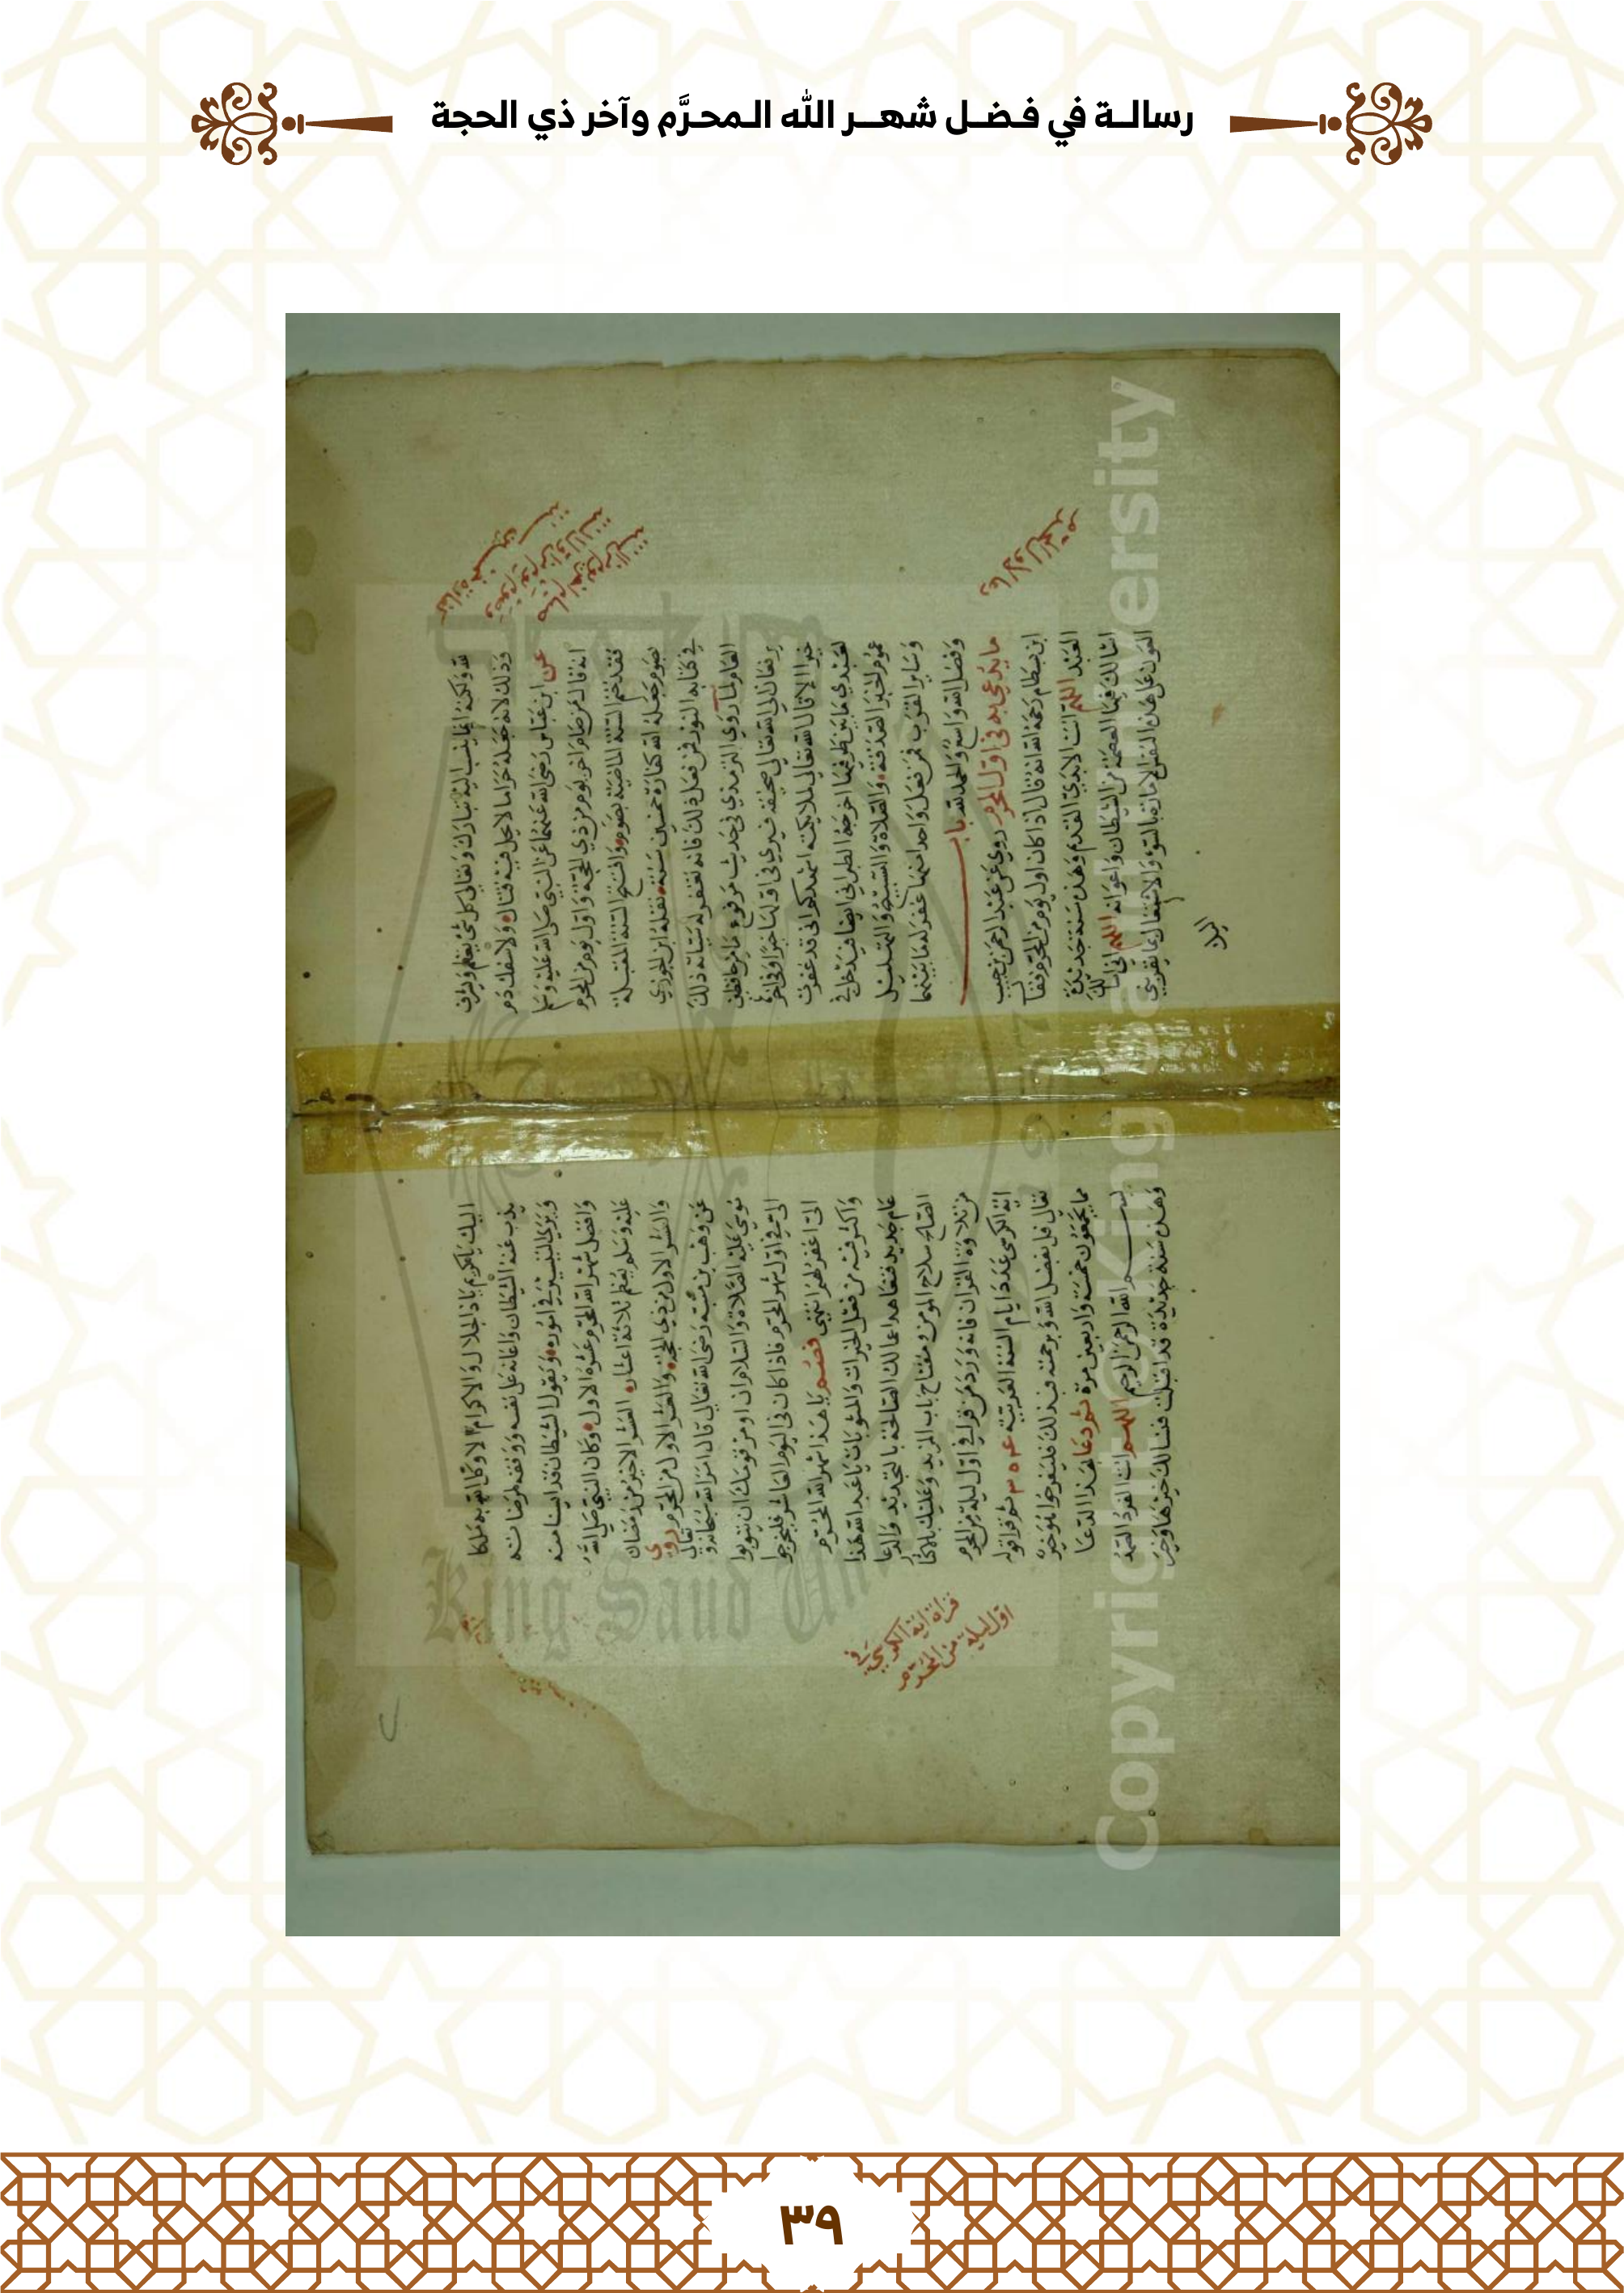 رسالة في فضل شهر الله المحرَّم وآخر ذي الحجة
كفارة خمسين سنة
لله ولكنه انما ينسب اليه تبارك وتعالى كل شئ يعظم ويشرف
وذلك لانه جعله حراما لا يحل فيه قتال ولا سفك دم
عن ابن عباس رضي الله عنهما عن النبي صلى الله عليه وسلم
انه قال من صام اخر يوم من ذي الحجة واول يوم من المحرم
فقد ختم السنة الماضية بصوم وافتتح السنة المقبلة
بصوم جعله الله كفارة خمسين سنة نقله ابن الجوزي
في كتابه النور فمن فعل ذلك فانه تغفر له سيئاته ذلك
العام لما روي الترمذي في حديث مرفوع ما من حافظين
يرفعان الى الله تعالى صحيفة فيرى في اولها خيرا وفي اخرها
خيرا الا قال الله تعالى لملائكته اشهدكم اني قد غفرت
لعبدي ما بين طرفيها اخرجه الطبراني ايضا فيدخل في
عموم الخبر الصدقة والصلاة والتسبيح والتهليل
وساير القرب فمن فعل واحدا منها غفر له ما بينهما
وفضل الله واسع والحمد لله باب
ما يدعى به في اول المحرم روي عن عبد الرحمن بن حبيب
ابن بسطام رحمه الله انه قال اذا كان اول يوم من المحرم فقال
العبد اللهم انت الابدي القديم وهذه سنة جديدة
اسالك فيها العصمة من الشيطان واعوانه اللهم اني اسالك
العون على هذه النفس الامارة بالسوء والاشتغال بما يقربني
دعاء اول المحرم
اليك ياكريم ياذا الجلال والاكرام الا وكل الله به ملكا
يذب عنه الشيطان واعانه على نفسه ووفقه لمرضاته
وييسر في اموره ويقول الشيطان قد ايسنا منه
وافضل شهر الله المحرم عشره الاول وكان النبي صلى الله
عليه وسلم يعظم ثلاثة اعشار العشر الاخير من رمضان
والعشر الاول من ذي الحجة والعشر الاول من المحرم روى
عن وهب بن منبه رضي الله تعالى قال امر الله سبحانه وتعالى
موسى عليه الصلاة والسلام ان اومر قومك ان يتوبوا
الي في اول شهر المحرم فاذا كان في اليوم العاشر فليخرجوا
الي اغفر لهم انتهى فصم يا هذا شهر الله المحرم
واكثر فيه من فعل الخيرات والمثوبات يا عبد الله هذا
عام جديد فتعاهد اعمالك الصالحة بالتجديد والدعا
الصالح سلاح المومن ومفتاح باب المزيد وعليك
من تلاوة القران فانه ورد من قرا في اول ليلة من المحرم
اية الكرسي عدد ايام السنة العربية ٣٥٤ ثم قرا قوله
تعالى قل بفضل الله وبرحمته فبذلك فليفرحوا هو خير
مما يجمعون خمسة واربعين مرة ثم دعا بهذا الدعا
بسم الله الرحمن الرحيم اللهم انت الفرد الصمد
وهذه سنة جديدة قد اقبلت فنسالك خيرها وخير
قراة اية الكرسي في
اول ليلة من المحرم
King Saud Un
Copyright © King Saud University
٣٩